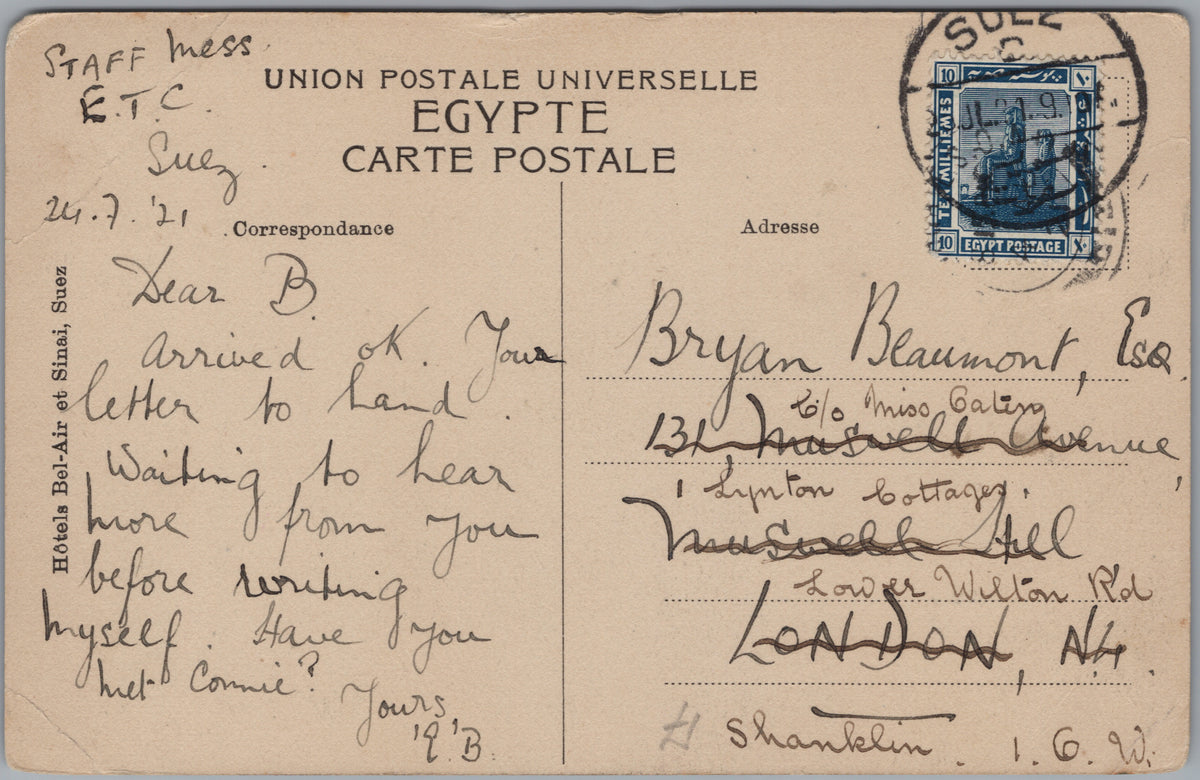 STAFF Mess
E.T.C.
Suez.
24.7.'21
UNION POSTALE UNIVERSELLE
EGYPTE
CARTE POSTALE
Correspondance
Adresse
Hôtels Bel-Air et Sinai, Suez
Dear B.
Arrived OK. Your
letter to hand.
Waiting to hear
more from you
before writing
myself. Have you
met Connie?
Yours
B.
SUEZ
C
JL. 21. 9
10
TEN MILLIEMES
10
EGYPT POSTAGE
١٠
١٠
Bryan Beaumont, Esq.
C/o Miss
131, Muswell Avenue,
1 Lynton Cottages,
Muswell Hill
Lower Wilton Rd
LONDON, N4.
Shanklin. I. O. W.